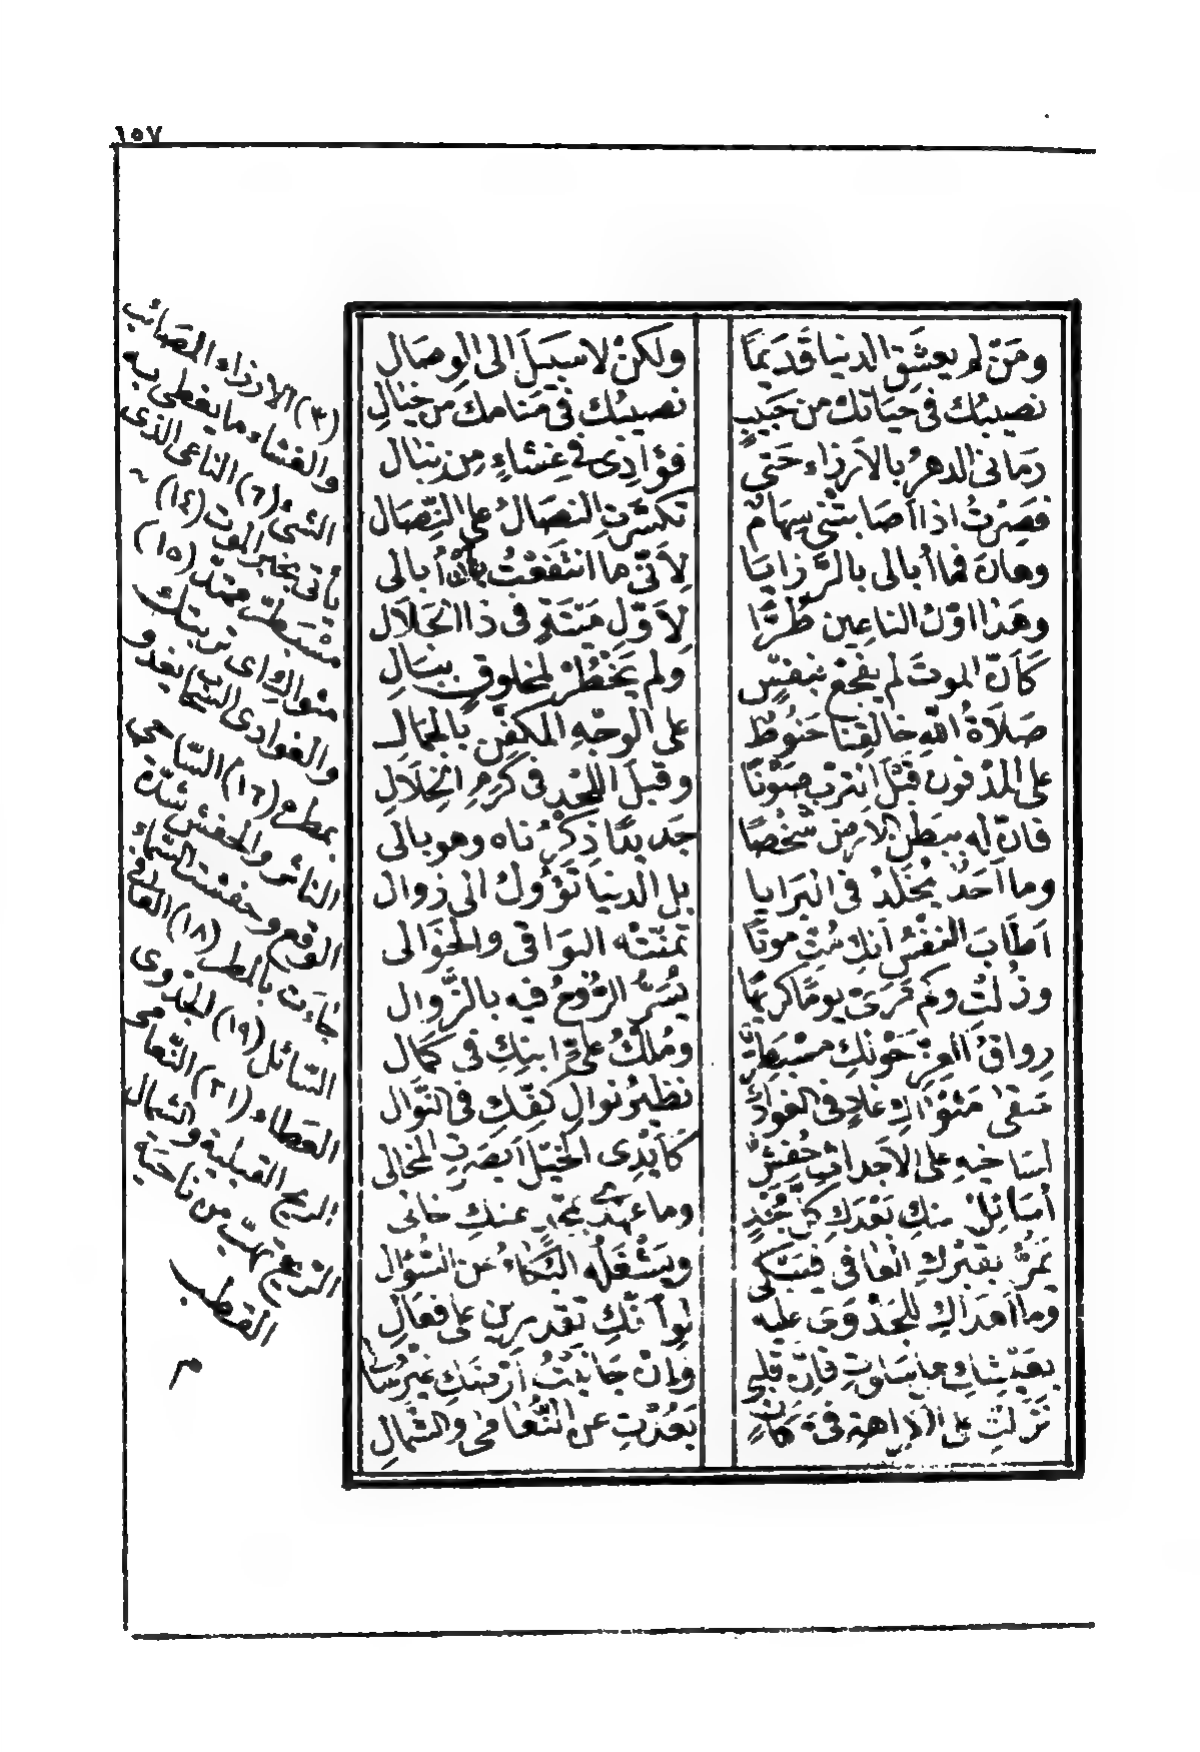 ١٥٧
ومَنْ لم يعشق الدنيا قديمًا ولكنْ لا سبيلَ الى الوِصَالِ
نصيبُك فى حياتك من حَبيبٍ نصيبُك فى مَنامك من خَيالِ
رمانى الدهرُ بالأرزاء حتى فؤادى فى غِشاءٍ مِن نِبالِ
فصِرْتُ اذا أصابتنى سِهامٌ تكسّرتِ النصَالُ على النِّصَالِ
وهانَ فما أبالى بالرَّزايَا لِأنّى ما انتفعتُ بأنْ أبالى
وهَذا اوّلُ الناعِين طُرًّا لِأوّلِ مَيْتَةٍ فى ذا الجَلَالِ
كأنّ الموتَ لم يَفجَع بنفسٍ ولم يَخْطُرْ لمخلوقٍ ببَالِ
صَلَاةُ اللهِ خالقِنا حَنُوطٌ على الوجْهِ المكفّنِ بالجَمالِ
على المدْفونِ قبْلَ التربِ صَوْنًا وقبلَ اللّحدِ فى كَرِمِ الخِلالِ
فانّ له ببَطنِ الأرضِ شَخْصًا جَديدًا ذِكْرُناه وهو بالى
وما أحَدٌ يُخَلّدُ فى البَرايا بل الدنيا تَؤُولُ الى زوالِ
أطابَ النفْسَ أنكِ مُتِّ موتًا تمنّتْه البَواقى والخَوَالى
وزُلتِ ولم تَرَىْ يومًا كريهًا يُسَرُّ الرّوحُ فيه بالزَّوالِ
رِواقُ العزّ حَوْلكِ مسْبَطِرٌّ ومُلكُ علىٍّ ابنِكِ فى كمالِ
سَقى مَثْوَاكِ غادٍ فى الغوادى نظيرُ نوالِ كفّكِ فى النَّوالِ
لساحِيهِ على الاجداثِ حَفْشٌ كأيْدِى الخَيْلِ أبصَرتِ المخالى
أُسَائلُ عنكِ بَعْدَكِ كلَّ مَجْدٍ وما عهْدى بمَجْدٍ عنكِ خالى
يَمُرُّ بقبْركِ العافى فيَبْكى ويَشْغَلُه البُكاءُ عن السُّؤالِ
وما أهداكِ للجَدْوَى عليه لو أنّكِ تقدرين على فَعالِ
بعيشكِ هل سَلوتِ فإنّ قلبى وإنْ جانبْتُ أرضَكِ غيرُ سالِ
نَزلتِ على الكراهةِ فى مَكانٍ بَعُدْتِ عن النُّعامَى والشَّمالِ
(٣) الارزاء المصَائب
والغشاء ما يغطى به
الشئ (٦) الناعى الذى
يأتى بخبر الموت (١٤) ~
مسْبَطرّ ممتدّ (١٥)
مثواكِ اى تربتك
والغوادى السّحب تغدو
بمطره (١٦) السّاحى
الناثر والحفش شدّة
الوقع وحفشت السّماء
جاءت بالمطر (١٨) العافى
السّائل (١٩) الجدوى
العطاء (٢١) النّعامى
الريح القبلية والشمال
الريح تهبّ من ناحية
القطب
م